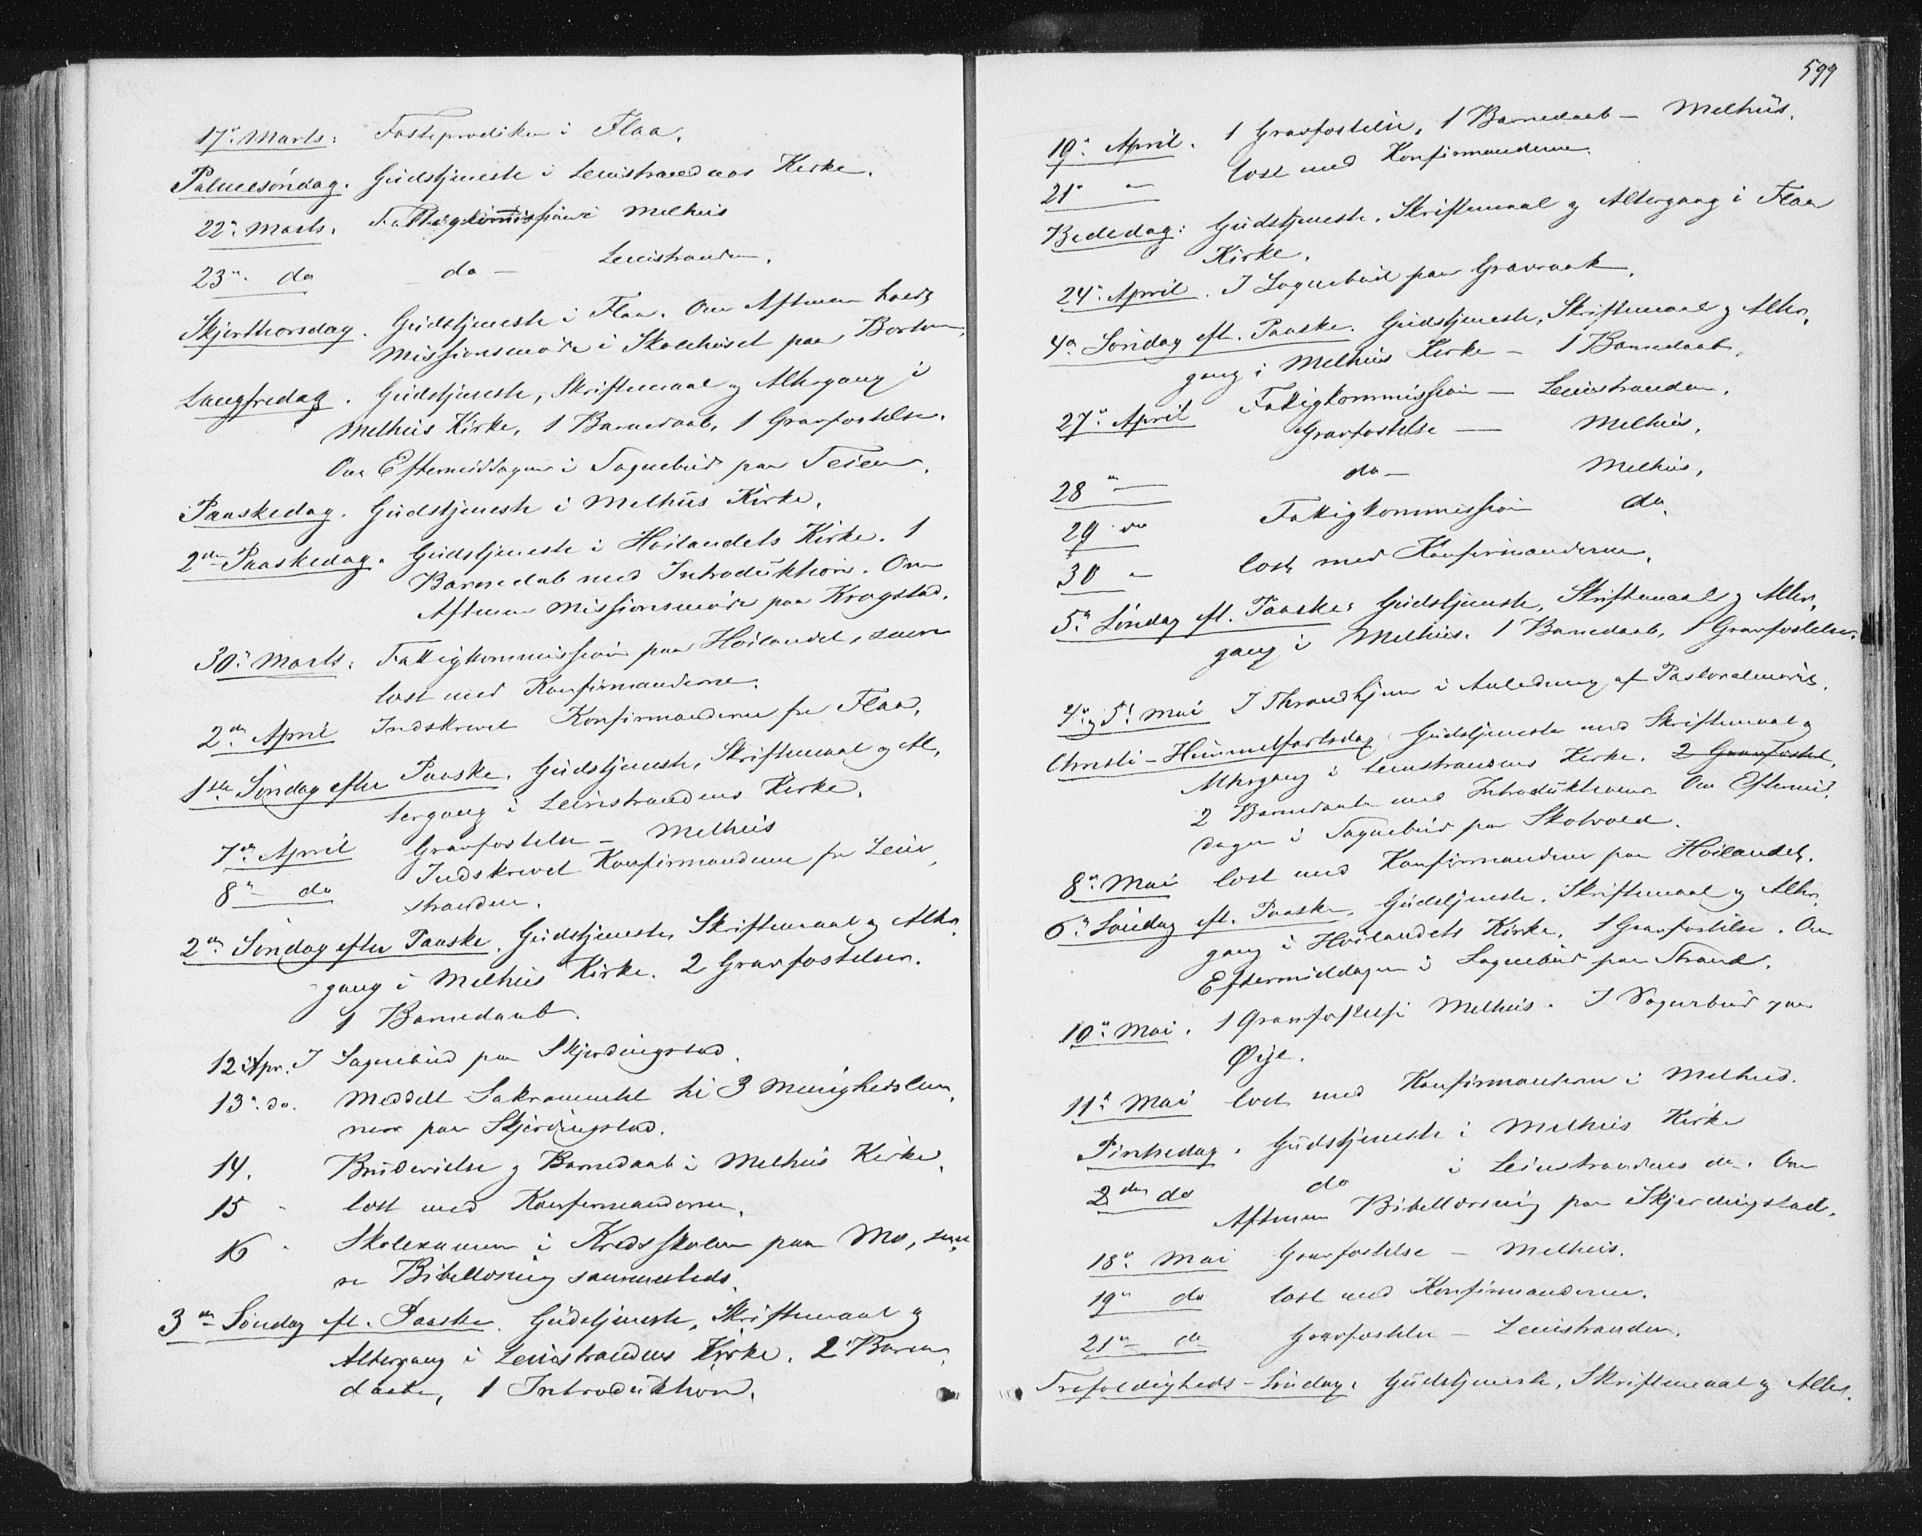 17de Marts. Fasteprædiken i Flaa.
Palmesøndag. Gudstjeneste i Leinstrandens Kirke.
22de Marts. Fattigkommission i Melhus
23de do do — Leinstranden.
Skjærthorsdag. Gudstjeneste i Flaa. Om Aftenen holdt
Missionsmøde i Skolehuset paa Borten.
Langfredag. Gudstjeneste, Skriftemaal og Altergang i
Melhus Kirke, 1 Barnedaab, 1 Gravfæstelse.
Om Eftermiddagen i Sognebud paa Teien.
Paaskedag. Gudstjeneste i Melhus Kirke.
2den Paaskedag. Gudstjeneste i Høilandets Kirke. 1
Barnedab med Introduktion. Om
Aftenen Missionsmøde paa Krogstad.
30te Marts. Fattigkommission paa Høilandet, samt
læst med Konfirmanderne.
2den April Indskrevet Konfirmanderne fra Flaa.
1ste Søndag efter Paaske. Gudstjeneste, Skriftemaal og Al-
tergang i Leinstrandens Kirke.
7de April Gravfæstelse — Melhus
8de do Indskrevet Konfirmanderne fra Lein-
stranden.
2den Søndag efter Paaske. Gudstjeneste, Skriftemaal og Alter-
gang i Melhus Kirke. 2 Gravfæstelser.
1 Barnedaab.
12 Apr. I Sognebud paa Skjerdingstad.
13de do. Meddelt Sakramentet til 3 Menighedslem-
mer paa Skjerdingstad.
14. Brudevielse og Barnedaab i Melhus Kirke.
15 - læst med Konfirmanderne.
16 - Skolexamen i Kredsskolen paa Mo, sene-
re Bibellæsning sammesteds.
3die Søndag eft. Paaske. Gudstjeneste, Skriftemaal og
Altergang i Leinstrandens Kirke. 2 Barne-
daab, 1 Introduktion.
599
19de April. 1 Gravfæstelse, 1 Barnedaab — Melhus.
21de — læst med Konfirmanderne.
Bededag: Gudstjeneste, Skriftemaal og Altergang i Flaa
Kirke.
24de April. I Sognebud paa Gravraak.
4de Søndag eft. Paaske. Gudstjeneste, Skriftemaal og Alter-
gang i Melhus Kirke — 1 Barnedaab.
27de April Fattigkommission — Leinstranden.
Gravfæstelse — Melhus.
28 — do — Melhus.
29 do Fattigkommission do.
30 — læst med Konfirmanderne.
5te Søndag eft. Paaske: Gudstjeneste, Skriftemaal og Alter-
gang i Melhus. 1 Barnedaab, 1 Gravfæstelse.
4de og 5te Mai I Throndhjem i Anledning af Pastoralmøde.
Christi-Himmelfartsdag. Gudstjeneste med Skriftemaal og
Altergang i Leinstrandens Kirke. 2 Gravfæstel.
2 Barnedaab med Introduktioner. Om Eftermid-
dagen i Sognebud paa Skolvold.
8de Mai læst med Konfirmanderne paa Høilandet.
6te Søndag eft. Paaske. Gudstjeneste, Skriftemaal og Alter-
gang i Høilandets Kirke. 1 Gravfæstelse. Om
Eftermiddagen i Sognebud paa Strand.
10de Mai. 1 Gravfæstelse i Melhus. I Sognebud paa
Øye.
11te Mai læst med Konfirmanderne i Melhus.
Pintsedag. Gudstjeneste i Melhus Kirke
2den do do i Leinstrandens do. Om
Aftenen Bibellæsning paa Skjerdingstad.
18de Mai Gravfæstelse — Melhus.
19de do læst med Konfirmanderne.
21de do Gravfæstelse — Leinstranden.
Trefoldigheds-Søndag. Gudstjeneste, Skriftemaal og Alter-